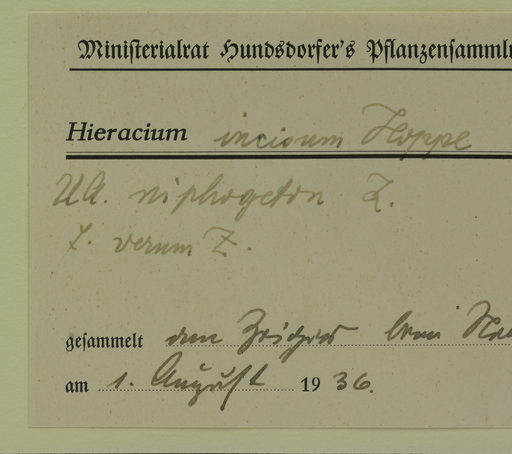 Ministerialrat Hundsdorfer's Pflanzensamml
Hieracium incisum Hoppe
UA. niphogeton Z.
f. verum Z.
gesammelt
am 1. August 1936.